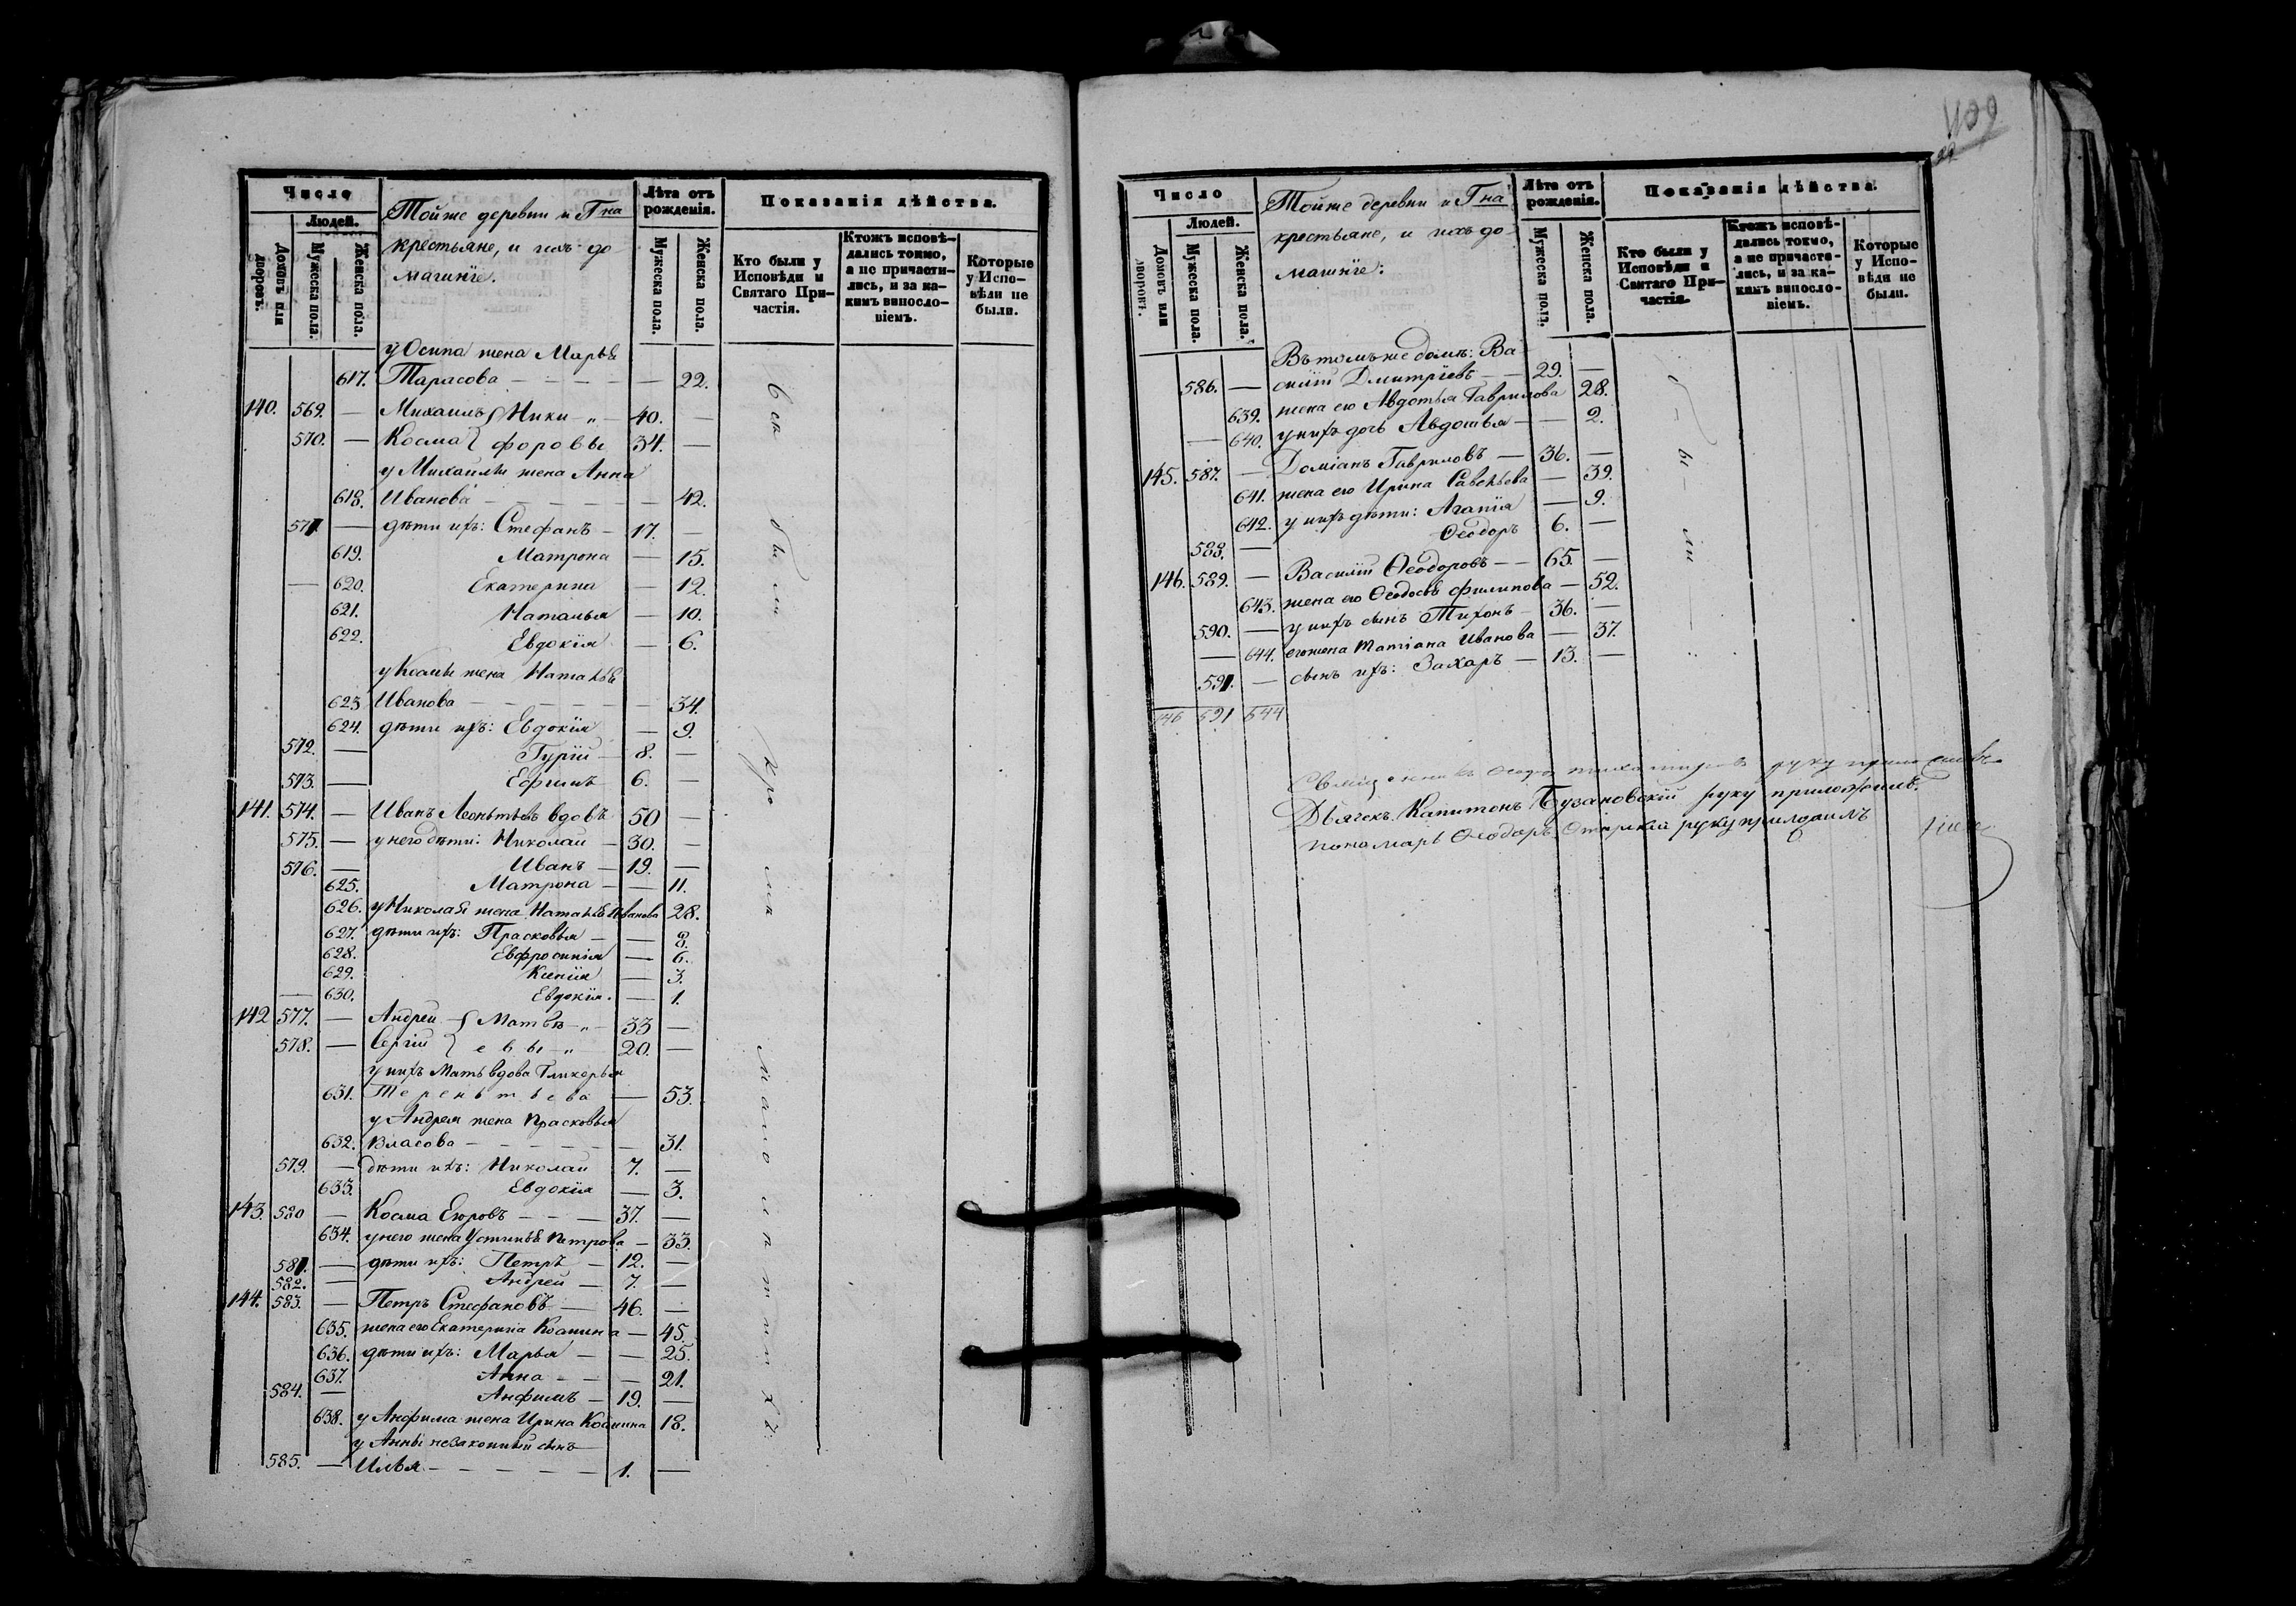 Число
Людей.
Домовъ или дворовъ.
Мужеска пола.
Женска пола.
Тойже деревни и Гна
крестьяне, и ихъ до
машніе.
Лѣта отъ рожденія.
Мужеска пола.
Женска пола.
Показанія дѣйства.
Кто были у Исповѣди и Святаго Причастія.
Ктожъ исповѣ-
дались токмо,
а не причасти-
лись, и за ка-
кимъ винословіемъ.
Которые у Испо-
вѣди не были.
у Осипа жена Марья
617. Тарасова — — 22.
140. 569. — Михаилъ { Ники-„- 40. —
570. — Косма { форовы 34. —
у Михаилы жена Анна
618. Иванова — — 42.
571 — дѣти ихъ: Стефанъ — 17. —
619. Матрона — 15.
— 620. Екатерина — 12.
621. Наталья — 10.
622. Евдокія — 6.
у Космы жена Наталья
623 Иванова — — 34.
624. дѣти ихъ: Евдокія — 9.
572. — Гурій — 8. —
573. — Ефимъ 6. —
141. 574. — Иванъ Леонтьевъ вдовъ 50 —
575. — у него дѣти: Николай — 30. —
576. — Иванъ — 19. —
625. Матрона — — 11.
626. у Николая жена Наталья Иванова 28.
627. дѣти ихъ: Прасковья — — 8.
628. Евфросинія — 6.
629. Ксенія — 3.
— 630. Евдокія. — 1.
142 577. — Андрей { Матвѣ-„- 33 —
578. — Сергій { евы -„- 20. —
у нихъ Мать вдова Гликерья
631. Терентьева — 53.
у Андрея жена Прасковья
632. Власова — — 31.
579. — дѣти ихъ: Николай 7. —
633. Евдокія — 3.
143. 580 — Косма Егоровъ — — 37. —
634. у него жена Устинья Петрова — 33.
581. — дѣти ихъ: Петръ — 12. —
582. — Андрей — 7. —
144. 583. — Петръ Стефановъ — 46. —
635. жена его Екатерина Козмина — 45.
636. дѣти ихъ: Марья — — 25.
637. Анна — — 21.
584. — Анфимъ — 19. —
638. у Анфима жена Ирина Козмина 18.
у Анны незаконный сынъ
585. — Илья — — 1. —
всѣ были кромѣ малолѣтнихъ
Число
Людей.
Домовъ или дворовъ.
Мужеска пола.
Женска пола.
Тойже деревни и Гна
крестьяне, и ихъ до
машніе.
Лѣта отъ рожденія.
Мужеска пола.
Женска пола.
Показанія дѣйства.
Кто были у Исповѣди и Святаго Причастія.
Ктожъ исповѣ-
дались токмо,
а не причасти-
лись, и за ка-
кимъ винословіемъ.
Которые у Испо-
вѣди не были.
Въ томъ же домѣ: Ва
586. — силій Дмитріевъ — 29. —
639. жена его Авдотья Гаврилова 28.
— 640. у нихъ дочь Авдотья — — 2.
145. 587. — Доміанъ Гавриловъ — 36. —
641. жена его Ирина Савельева — 39.
642. у нихъ дѣти: Агапія — 9.
588. — Ѳеодоръ 6. —
146. 589. — Василій Ѳеодоровъ — — 65. —
643. жена его Ѳеодосья Филипова — 52.
590. — у нихъ сынъ Тихонъ — 36. —
— 644. его жена Татіана Иванова — 37.
591. — сынъ ихъ: Захаръ — 13. —
146 591 644
были
Священникъ руку приложилъ
Дьячекъ Капитонъ Бузановскій руку приложилъ.
пономарь Ѳеодоръ руку приложилъ